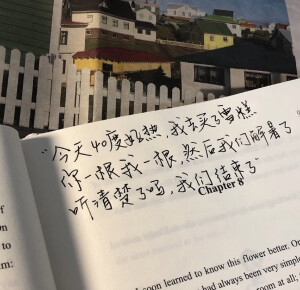 "今天40度好热 我去买了雪糕
你一根我一根,然后我们解暑了
听清楚了吗,我们结束了"
Chapter 8
soon learned to know this flower better. On
had always been very simple
room at all;
of
on
to
em: